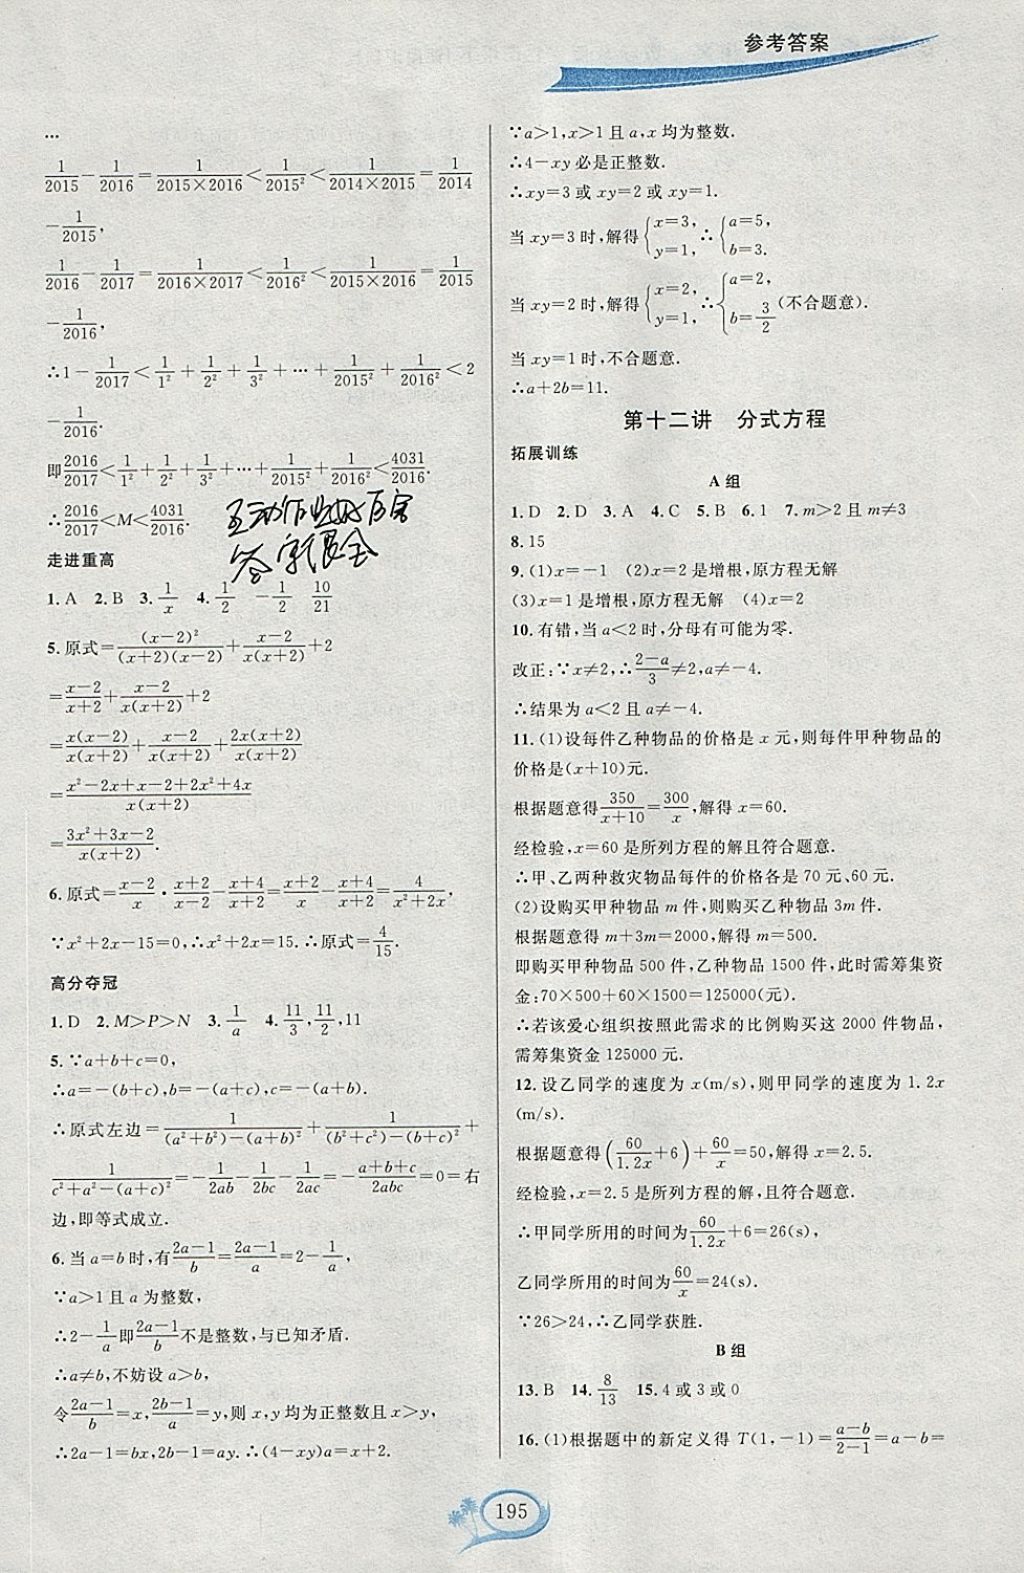 参考答案
…
1/2015－1/2016＝1/(2015×2016)＜1/2015²＜1/(2014×2015)＝1/2014
－1/2015,
1/2016－1/2017＝1/(2016×2017)＜1/2016²＜1/(2015×2016)＝1/2015
－1/2016,
∴1－1/2017＜1/1²＋1/2²＋1/3²＋…＋1/2015²＋1/2016²＜2
－1/2016.
即2016/2017＜1/1²＋1/2²＋1/3²＋…＋1/2015²＋1/2016²＜4031/2016.
∴2016/2017＜M＜4031/2016.
走进重高
1. A 2. B 3. 1/x 4. 1/2 －1/2 10/21
5. 原式＝(x－2)²/((x＋2)(x－2))＋(x－2)/(x(x＋2))＋2
＝(x－2)/(x＋2)＋(x－2)/(x(x＋2))＋2
＝x(x－2)/(x(x＋2))＋(x－2)/(x(x＋2))＋2x(x＋2)/(x(x＋2))
＝(x²－2x＋x－2＋2x²＋4x)/(x(x＋2))
＝(3x²＋3x－2)/(x(x＋2)).
6. 原式＝(x－2)/x·(x＋2)/(x－2)－(x＋4)/(x＋2)＝(x＋2)/x－(x＋4)/(x＋2)＝4/(x²＋2x),
∵x²＋2x－15＝0,∴x²＋2x＝15.∴原式＝4/15.
高分夺冠
1. D 2. M＞P＞N 3. 1/a 4. 11/3,11/2,11
5. ∵a＋b＋c＝0,
∴a＝－(b＋c),b＝－(a＋c),c＝－(a＋b).
∴原式左边＝1/((a²＋b²)－(a＋b)²)＋1/((b²＋c²)－(b＋c)²)＋
1/(c²＋a²－(a＋c)²)＝－1/2ab－1/2bc－1/2ac＝－(a＋b＋c)/2abc＝0＝右
边,即等式成立.
6. 当a＝b时,有(2a－1)/b＝(2a－1)/a＝2－1/a,
∵a＞1且a为整数,
∴2－1/a即(2a－1)/b不是整数,与已知矛盾.
∴a≠b,不妨设a＞b,
令(2a－1)/b＝x,(2b－1)/a＝y,则x,y均为正整数且x＞y,
∴2a－1＝bx,2b－1＝ay.∴(4－xy)a＝x＋2.
∵a＞1,x＞1且a,x均为整数.
∴4－xy必是正整数.
∴xy＝3或xy＝2或xy＝1.
当xy＝3时,解得{x＝3, y＝1,∴{a＝5, b＝3.
当xy＝2时,解得{x＝2, y＝1,∴{a＝2, b＝3/2(不合题意).
当xy＝1时,不合题意.
∴a＋2b＝11.
第十二讲 分式方程
拓展训练
A组
1. D 2. D 3. A 4. C 5. B 6. 1 7. m＞2且m≠3
8. 15
9. (1)x＝－1 (2)x＝2是增根,原方程无解
(3)x＝1是增根,原方程无解 (4)x＝2
10. 有错,当a＜2时,分母有可能为零.
改正:∵x≠2,∴(2－a)/3≠2,a≠－4.
∴结果为a＜2且a≠－4.
11. (1)设每件乙种物品的价格是x元,则每件甲种物品的
价格是(x＋10)元.
根据题意得350/(x＋10)＝300/x,解得x＝60.
经检验,x＝60是所列方程的解且符合题意.
∴甲、乙两种救灾物品每件的价格各是70元、60元.
(2)设购买甲种物品m件,则购买乙种物品3m件.
根据题意得m＋3m＝2000,解得m＝500.
即购买甲种物品500件,乙种物品1500件,此时需筹集资
金:70×500＋60×1500＝125000(元).
∴若该爱心组织按照此需求的比例购买这2000件物品,
需筹集资金125000元.
12. 设乙同学的速度为x(m/s),则甲同学的速度为1.2x
(m/s).
根据题意得(60/1.2x＋6)＋60/x＝50,解得x＝2.5.
经检验,x＝2.5是所列方程的解,且符合题意.
∴甲同学所用的时间为60/1.2x＋6＝26(s),
乙同学所用的时间为60/x＝24(s).
∵26＞24,∴乙同学获胜.
B组
13. B 14. 8/13 15. 4或3或0
16. (1)根据题中的新定义得T(1,－1)＝(a－b)/(2－1)＝a－b＝
195